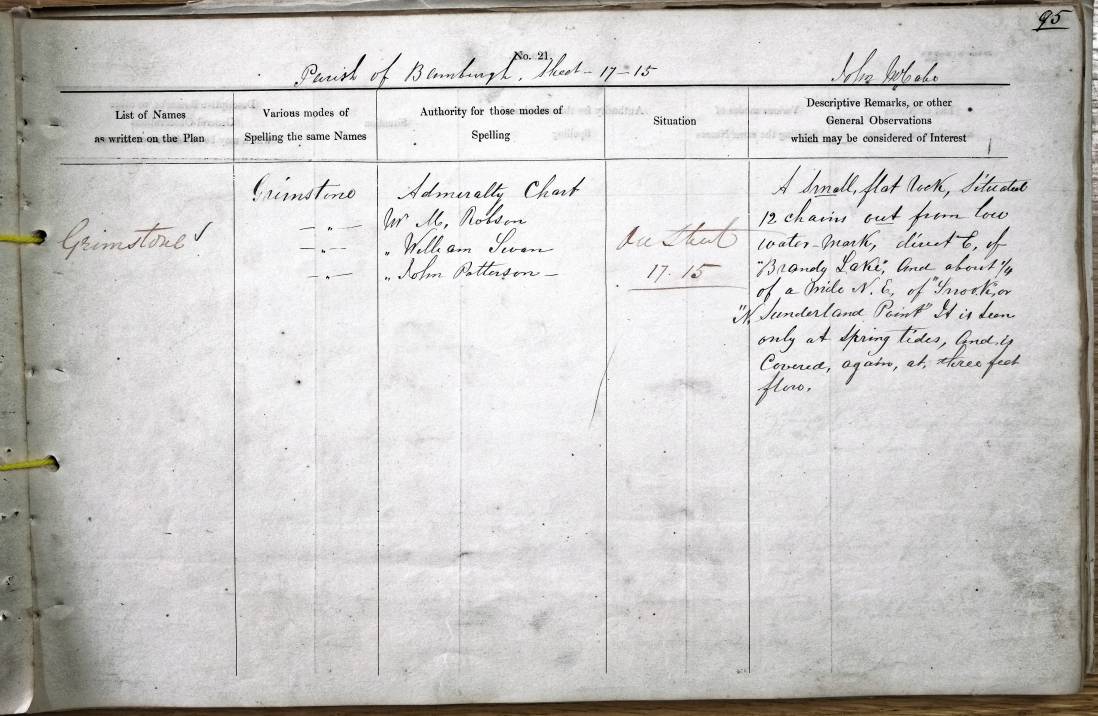 95
No. 21
Parish of Bamburgh. Sheet - 17 - 15
John McCabe
List of Names
as written on the Plan
Various modes of
Spelling the same Names
Authority for those modes of
Spelling
Situation
Descriptive Remarks, or other
General Observations
which may be considered of Interest
Grimstone ✓
Grimstone
— „ —
— „ —
— „ —
Admiralty Chart
Wm. M, Robson
„ William Swan
„ John Patterson —
On Sheet
17. 15
A Small, flat Rock, Situated
12 chains out from low
water-mark, direct E, of
"Brandy Lake", And about 1/4
of a Mile N. E, of "Snook, or
"N. Sunderland Point" It is Seen
only at Spring tides, And is
Covered, again, at, three feet
flow.